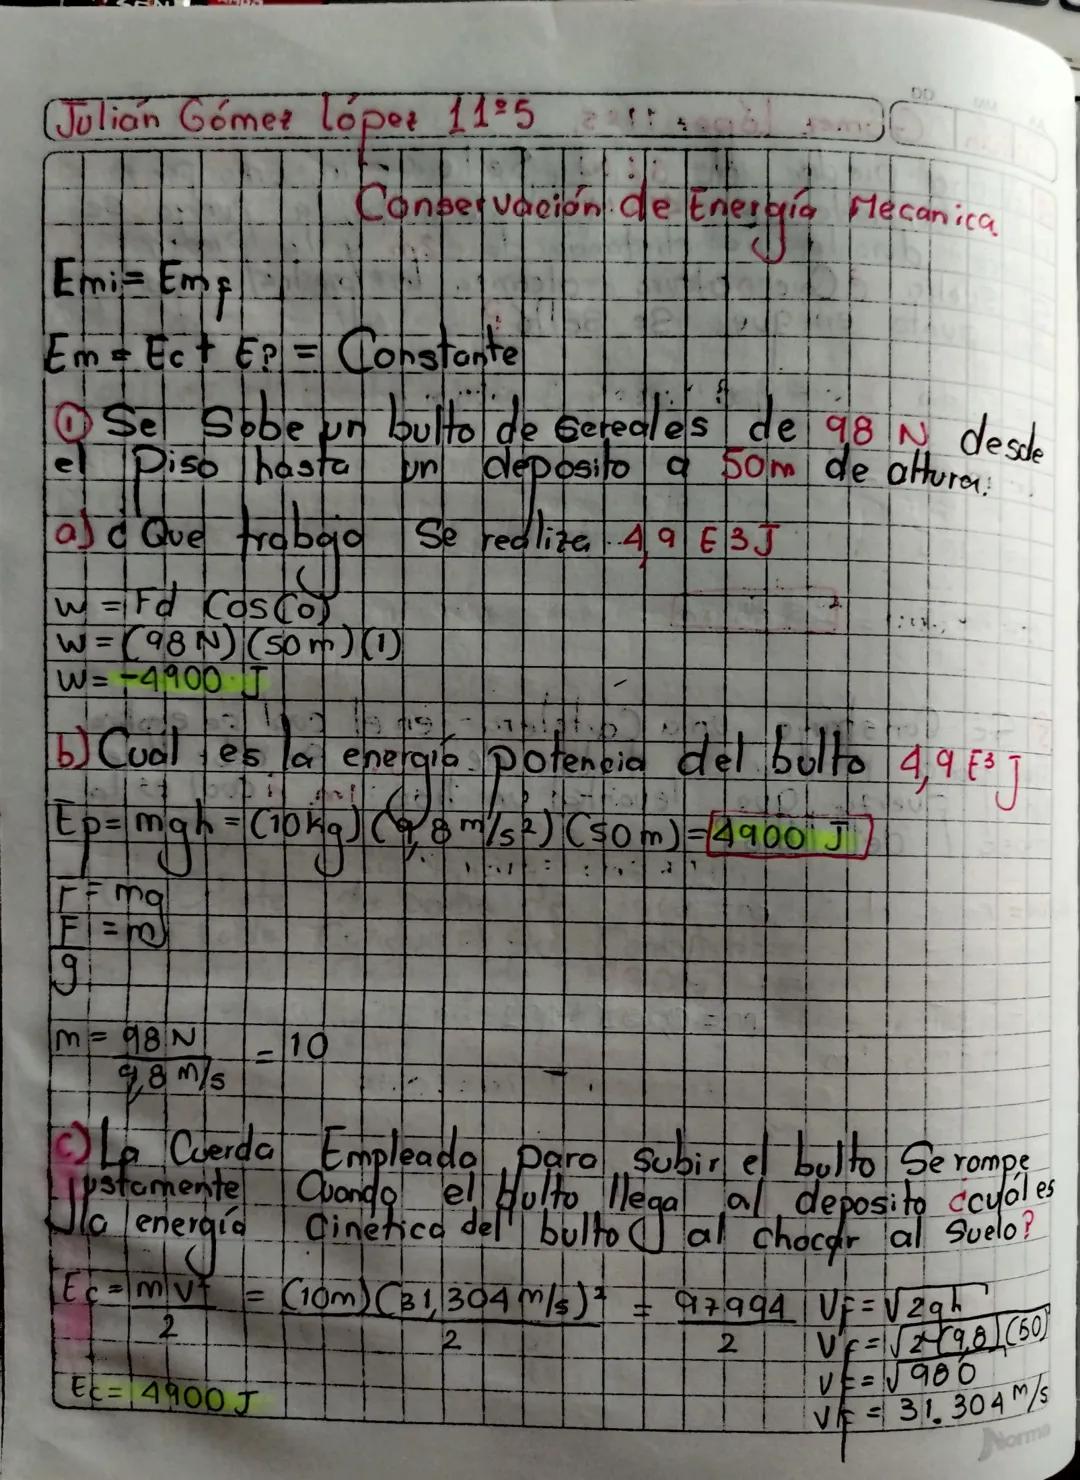 Julián Gómez lópez 11°5
Conservación de Energía Mecanica
Emi = Emf
Em = Ec + EP = Constante
① Se Sube un bulto de Sereales de 98 N desde
el Piso hasta un deposito a 50m de altura.
a) ¿Que trabajo Se realiza 4,9 E3J
W = Fd Cos(0)
W = (98 N) (50 m) (1)
W = -4900 J
b) Cual es la energía potencia del bulto 4,9 E³ J
Ep = mgh = (10 kg) (9,8 m/s²) (50 m) = 4900 J
F = mg
F = m
g
m = 98 N = 10
9,8 m/s
c) La Cuerda Empleada para subir el bulto Se rompe
justamente Cuando el bulto llega al deposito ¿cuál es
la energía Cinetica del bulto al chocar al Suelo?
Ec = m v² = (10m) (31,304 m/s)² = 97994
2 2 2
Ec = 4900 J
Vf = √2gh
Vf = √2 (9,8) (50)
Vf = √980
Vf = 31.304 m/s
Norma